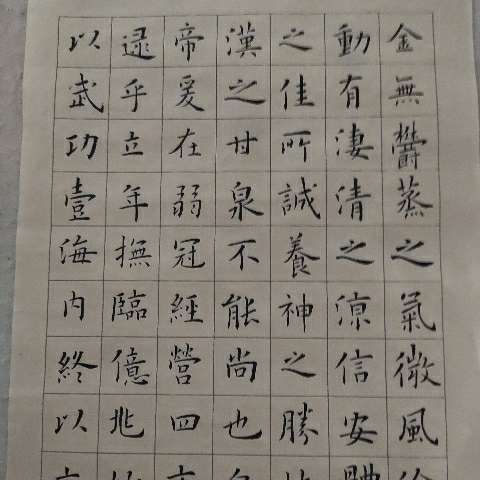 金無鬱蒸之氣微風
動有淒清之涼信安
之佳所誠養神之勝
漢之甘泉不能尚也
帝爰在弱冠經營四
逮乎立年撫臨億兆
以武功壹海內終以